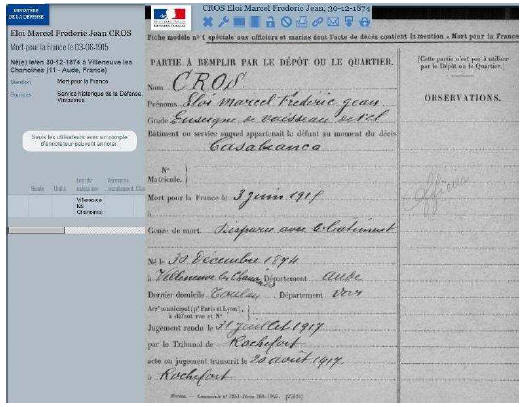 MINISTÈRE
DE LA DÉFENSE
Eloi Marcel Frederic Jean CROS
Mort pour la France le 03-06-1915
Né(e) le/en 30-12-1874 à Villeneuve les
Chanoines (11 - Aude, France)
Service historique de la Défense,
Vincennes
Seuls les utilisateurs avec un compte
d'annotateur peuvent annoter
Villeneuve
les
Chanoines
Eloi Marcel Frederic Jean CROS, 30-12-1874
Fiche modèle n° 1 spéciale aux officiers et marins dont l'acte de décès contient la mention « Mort pour la France
PARTIE À REMPLIR PAR LE DÉPÔT OU LE QUARTIER.
(Cette partie n'est pas à utiliser
par le Dépôt ou le Quartier.
OBSERVATIONS.
Nom CROS
Prénoms Eloi Marcel Frédéric Jean
Grade Enseigne de vaisseau
Bâtiment ou service auquel appartenait le défunt au moment du décès
Casabianca
N°
Matricule.
Officier
Mort pour la France le 3 juin 1915
à
Genre de mort Disparu avec le bâtiment
Né le 30 Décembre 1874
à Villeneuve les Chanoines Département Aude
Dernier domicile Toulon Département Var
Arr' municipal (p' Paris et Lyon),
à défaut rue et N°
Jugement rendu le 31 juillet 1917
par le Tribunal de Rochefort
acte ou jugement transcrit le 20 août 1917
à Rochefort